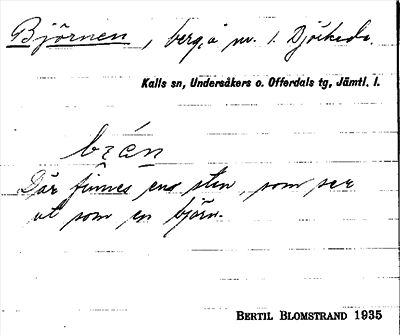 Björnen, berg, å nv. l. Djöskeds.
Kalls sn, Undersåkers o. Offerdals tg, Jämtl. l.
Där finnes ena sten, som ser
ut som en björn.
BERTIL BLOMSTRAND 1935